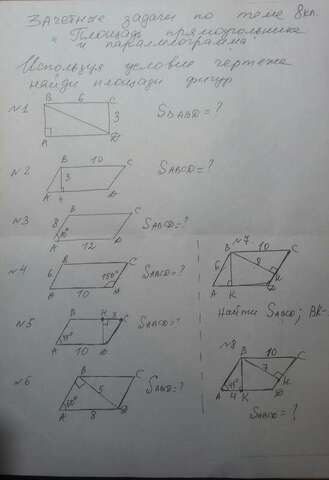 Зачетные задачи по теме 8кл.
"Площадь прямоугольника
и параллелограмма"
Используя условие чертежа
найди площади фигур
№1 B 6 C 3 A D S ABD = ?
№2 B 10 C 3 A 4 D S ABCD = ?
№3 B C 8 A 12 D S ABCD = ?
№4 B C 6 150° A 10 D S ABCD = ?
№5 B H 3 C A 10 D S ABCD = ?
№6 B C 5 A 8 D S ABCD = ?
№7 B 10 C 6 8 H A K D
Найти S ABCD; BK-
№8 B 10 C 7 H A 4 K D
S ABCD = ?